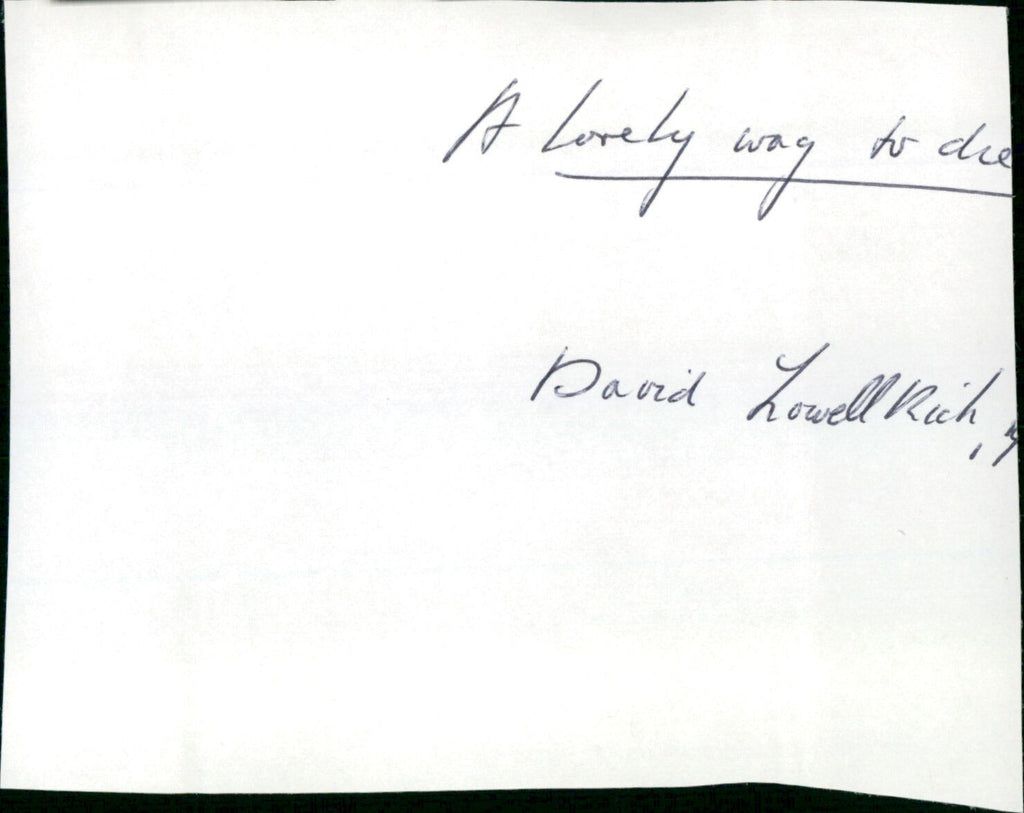 A lovely way to die
David Lowell Rich,